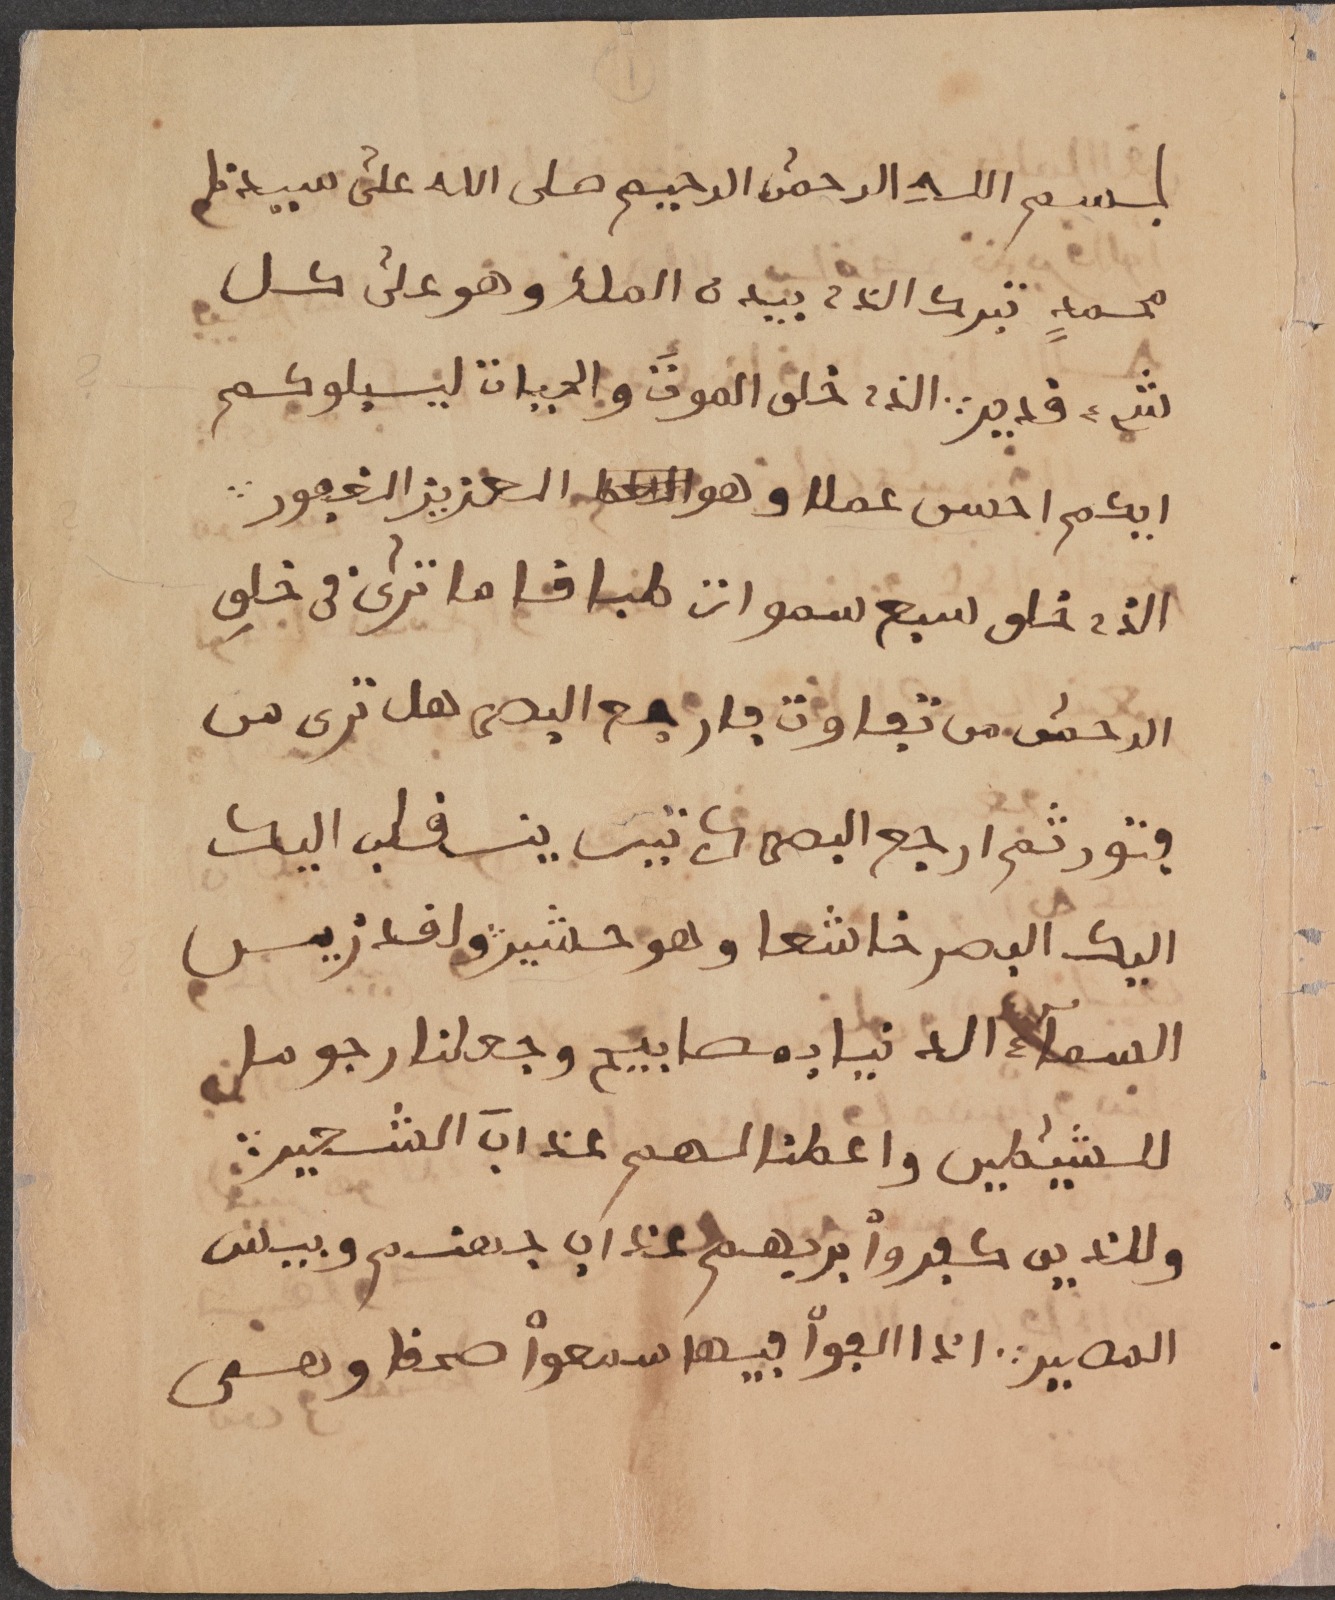 بسم الله الرحمن الرحيم صلى الله على سيدنا
محمدٍ تبرك الذى بيده الملك وهو على كل
شىء قدير الذى خلق الموت والحيات ليسبلوكم
ايكم احسن عملا وهو العزيز الغفور
الذى خلق سبع سموات طباقا ما ترى فى خلق
الرحمن من تفاوت فارجع البصر هل ترى من
فتور ثم ارجع البصر كرتين ينسقلب اليك
اليك البصر خاشعا وهو حشير ولقد زيس
السمآء الدنيا بمصابيح وجعلنا رجوما
للشيطين واعطنا لهم عذاب الشعير
وللذين كفروا بربهم عذاب جهنم وبيس
المصير اذا القوا فيها سمعوا صهقا وهسى